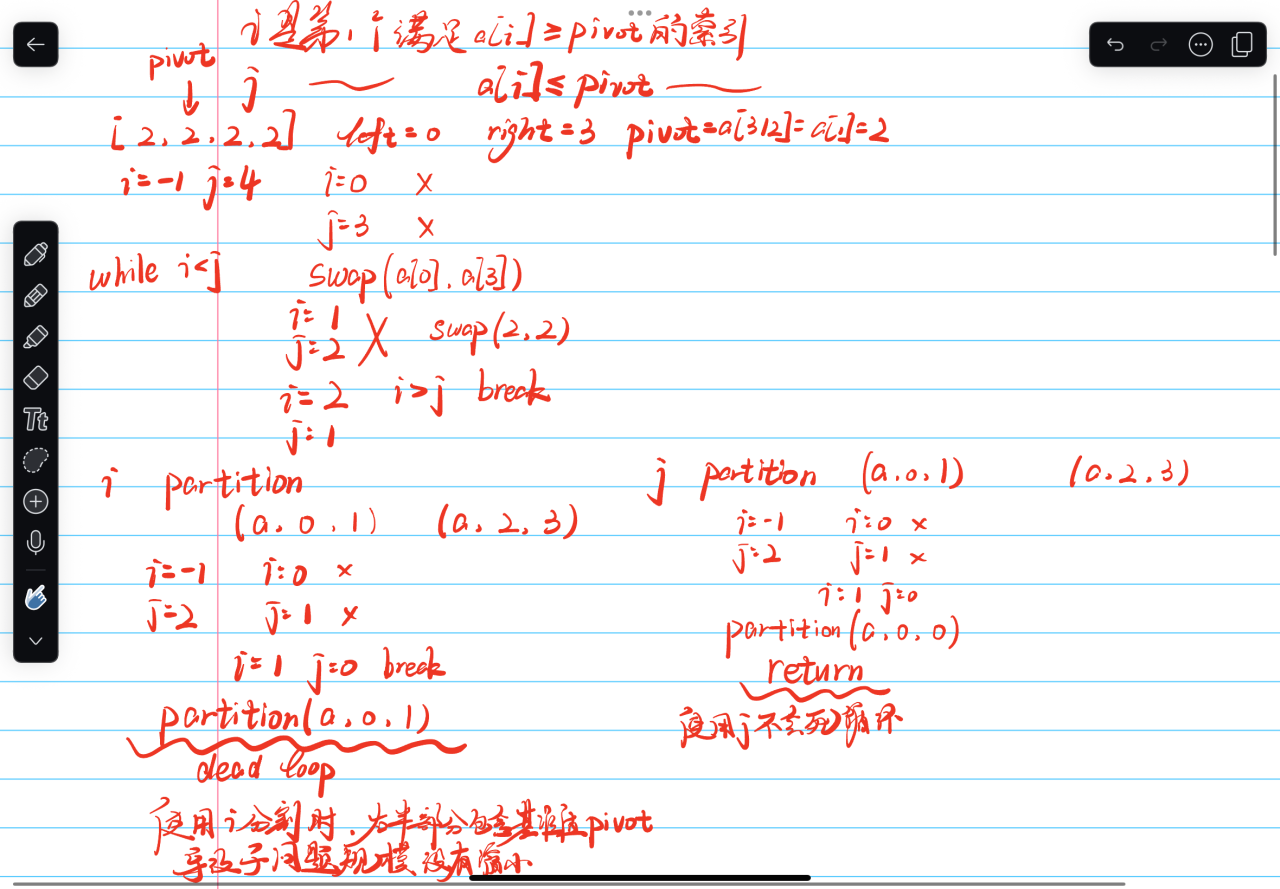 i是第1个满足a[i]≥pivot的索引
pivot
↓
j ～ a[i]≤pivot ～
[2, 2, 2, 2] left=0 right=3 pivot=a[3/2]=a[1]=2
i=-1 j=4 i=0 ×
j=3 ×
while i<j swap(a[0], a[3])
i=1
j=2 × swap(2, 2)
i=2 i>j break
j=1
i partition
(a, 0, 1) (a, 2, 3)
i=-1 i=0 ×
j=2 j=1 ×
i=1 j=0 break
partition(a, 0, 1)
dead loop
使用i分割时，左半部分包含基准值pivot
导致子问题规模没有缩小
j partition (a, 0, 1) (a, 2, 3)
i=-1 i=0 ×
j=2 j=1 ×
i=1 j=0
partition(a, 0, 0)
return
使用j不会死循环
Tt